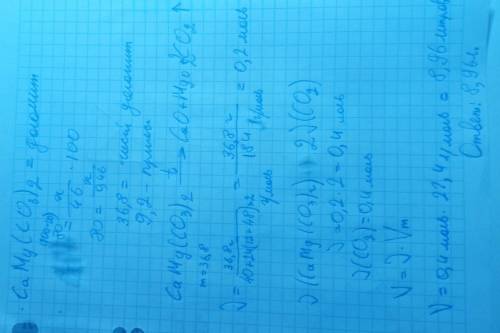 CaMg(CO3)2 = доломит
80 = x/46 · 100
80 = x/946
36,8 = чистый доломит
9,2 - примесь
CaMg(CO3)2 t→ CaO + MgO + 2CO2↑
m = 36,8
ν = 36,8 г / 40+24+(12+48)·2 г/моль = 36,8 г / 184 г/моль = 0,2 моль
ν(CaMg(CO3)2) 2ν(CO2)
ν = 0,2·2 = 0,4 моль
ν(CO2) = 0,4 моль
V = ν · Vm
V = 0,4 моль · 22,4 л/моль = 8,96 литров
Ответ: 8,96 л.